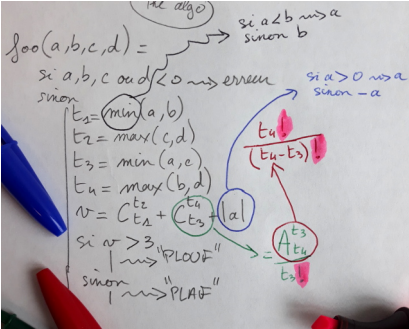 the algo
foo(a,b,c,d) =
si a,b,c ou d < 0 ⇝ erreur
sinon
t1 = min(a,b)
t2 = max(c,d)
t3 = min(a,c)
t4 = max(b,d)
v = C_{t1}^{t2} + C_{t3}^{t4} + |a|
si v > 3
⇝ "PLOUF"
sinon
⇝ "PLAF"
si a<b ⇝ a
sinon b
si a>0 ⇝ a
sinon -a
t4!
(t4-t3)!
= A_{t4}^{t3}
t3!